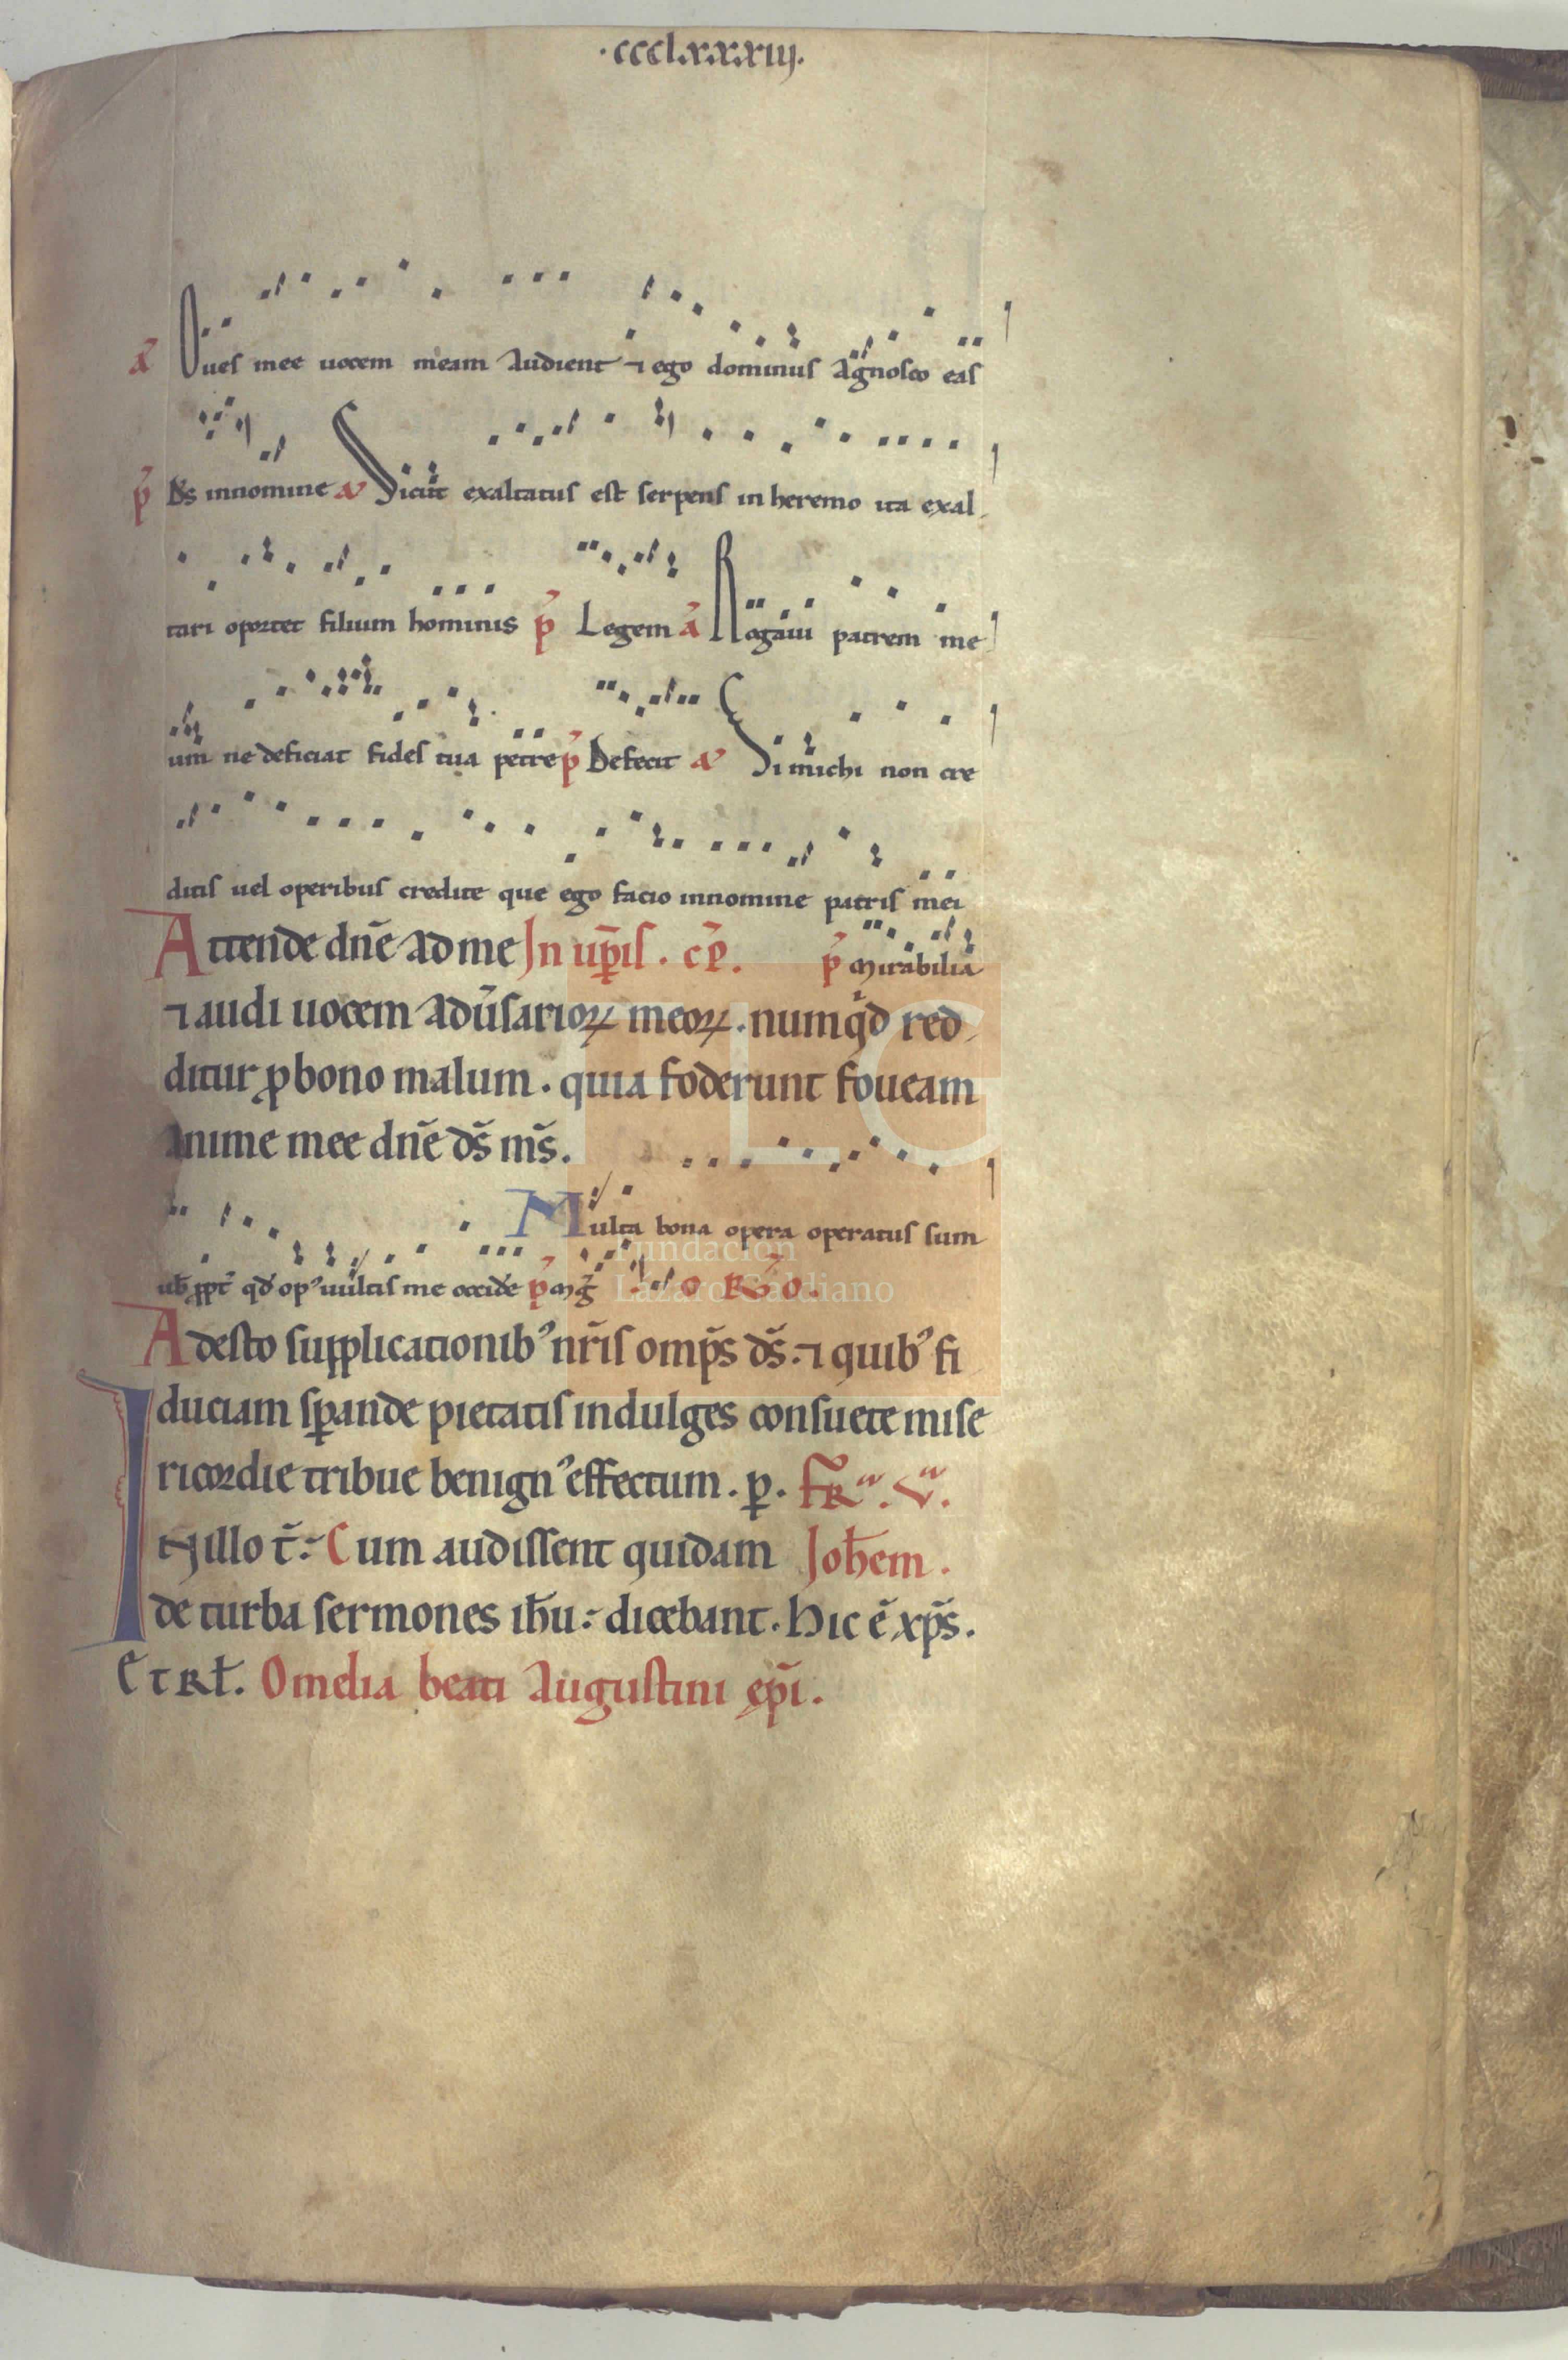 ·ccclxxxiij.
a̅ Oues mee uocem meam audient ⁊ ego dominus agnosco eas
p̅ d̅s innomine a̅ Sicut exaltatus est serpens in heremo ita exal
tari oportet filium hominis p̅ Legem a̅ Rogaui patrem me
um ne deficiat fides tua petre p̅ Defecit a̅ Si michi non cre
ditis uel operibus credite que ego facio innomine patris mei
Attende dn̅e ad me In up̅is . cp̅. p̅ mirabilia
⁊ audi uocem adu̅sarioꝝ meoꝝ . numqͥd red
ditur ꝓ bono malum . quia foderunt foueam
anime mee dn̅e d̅s m̅s.
Multa bona opera operatus sum
uob̅ ꝓpt̅ qd̕ op᾽ uultis me occide̕ p̅ mg̅ Ro.
Adesto supplicationib᾽ nr̅is omp̅s d̅s. ⁊ quib᾽ fi
duciam sꝑande pietatis indulges consuete mise
ricordie tribue benign᾽ effectum . ꝑ. FRᵃ. Vᵃ.
IN illo t̅. Cum audissent quidam Joh̅em .
de turba sermones ih̅u. dicebant. Hic e̅ xp̅s.
Et Rł. Omelia beati Augustini ep̅i .
Fundación
Lázaro Galdiano